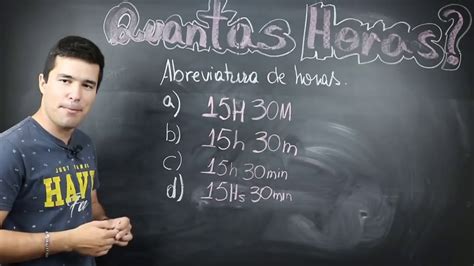 Quantas Horas?
Abreviatura de horas.
a) 15H 30M
b) 15h 30m
c) 15h 30min
d) 15Hs 30min
JUST FAMES
HAVE
Fun